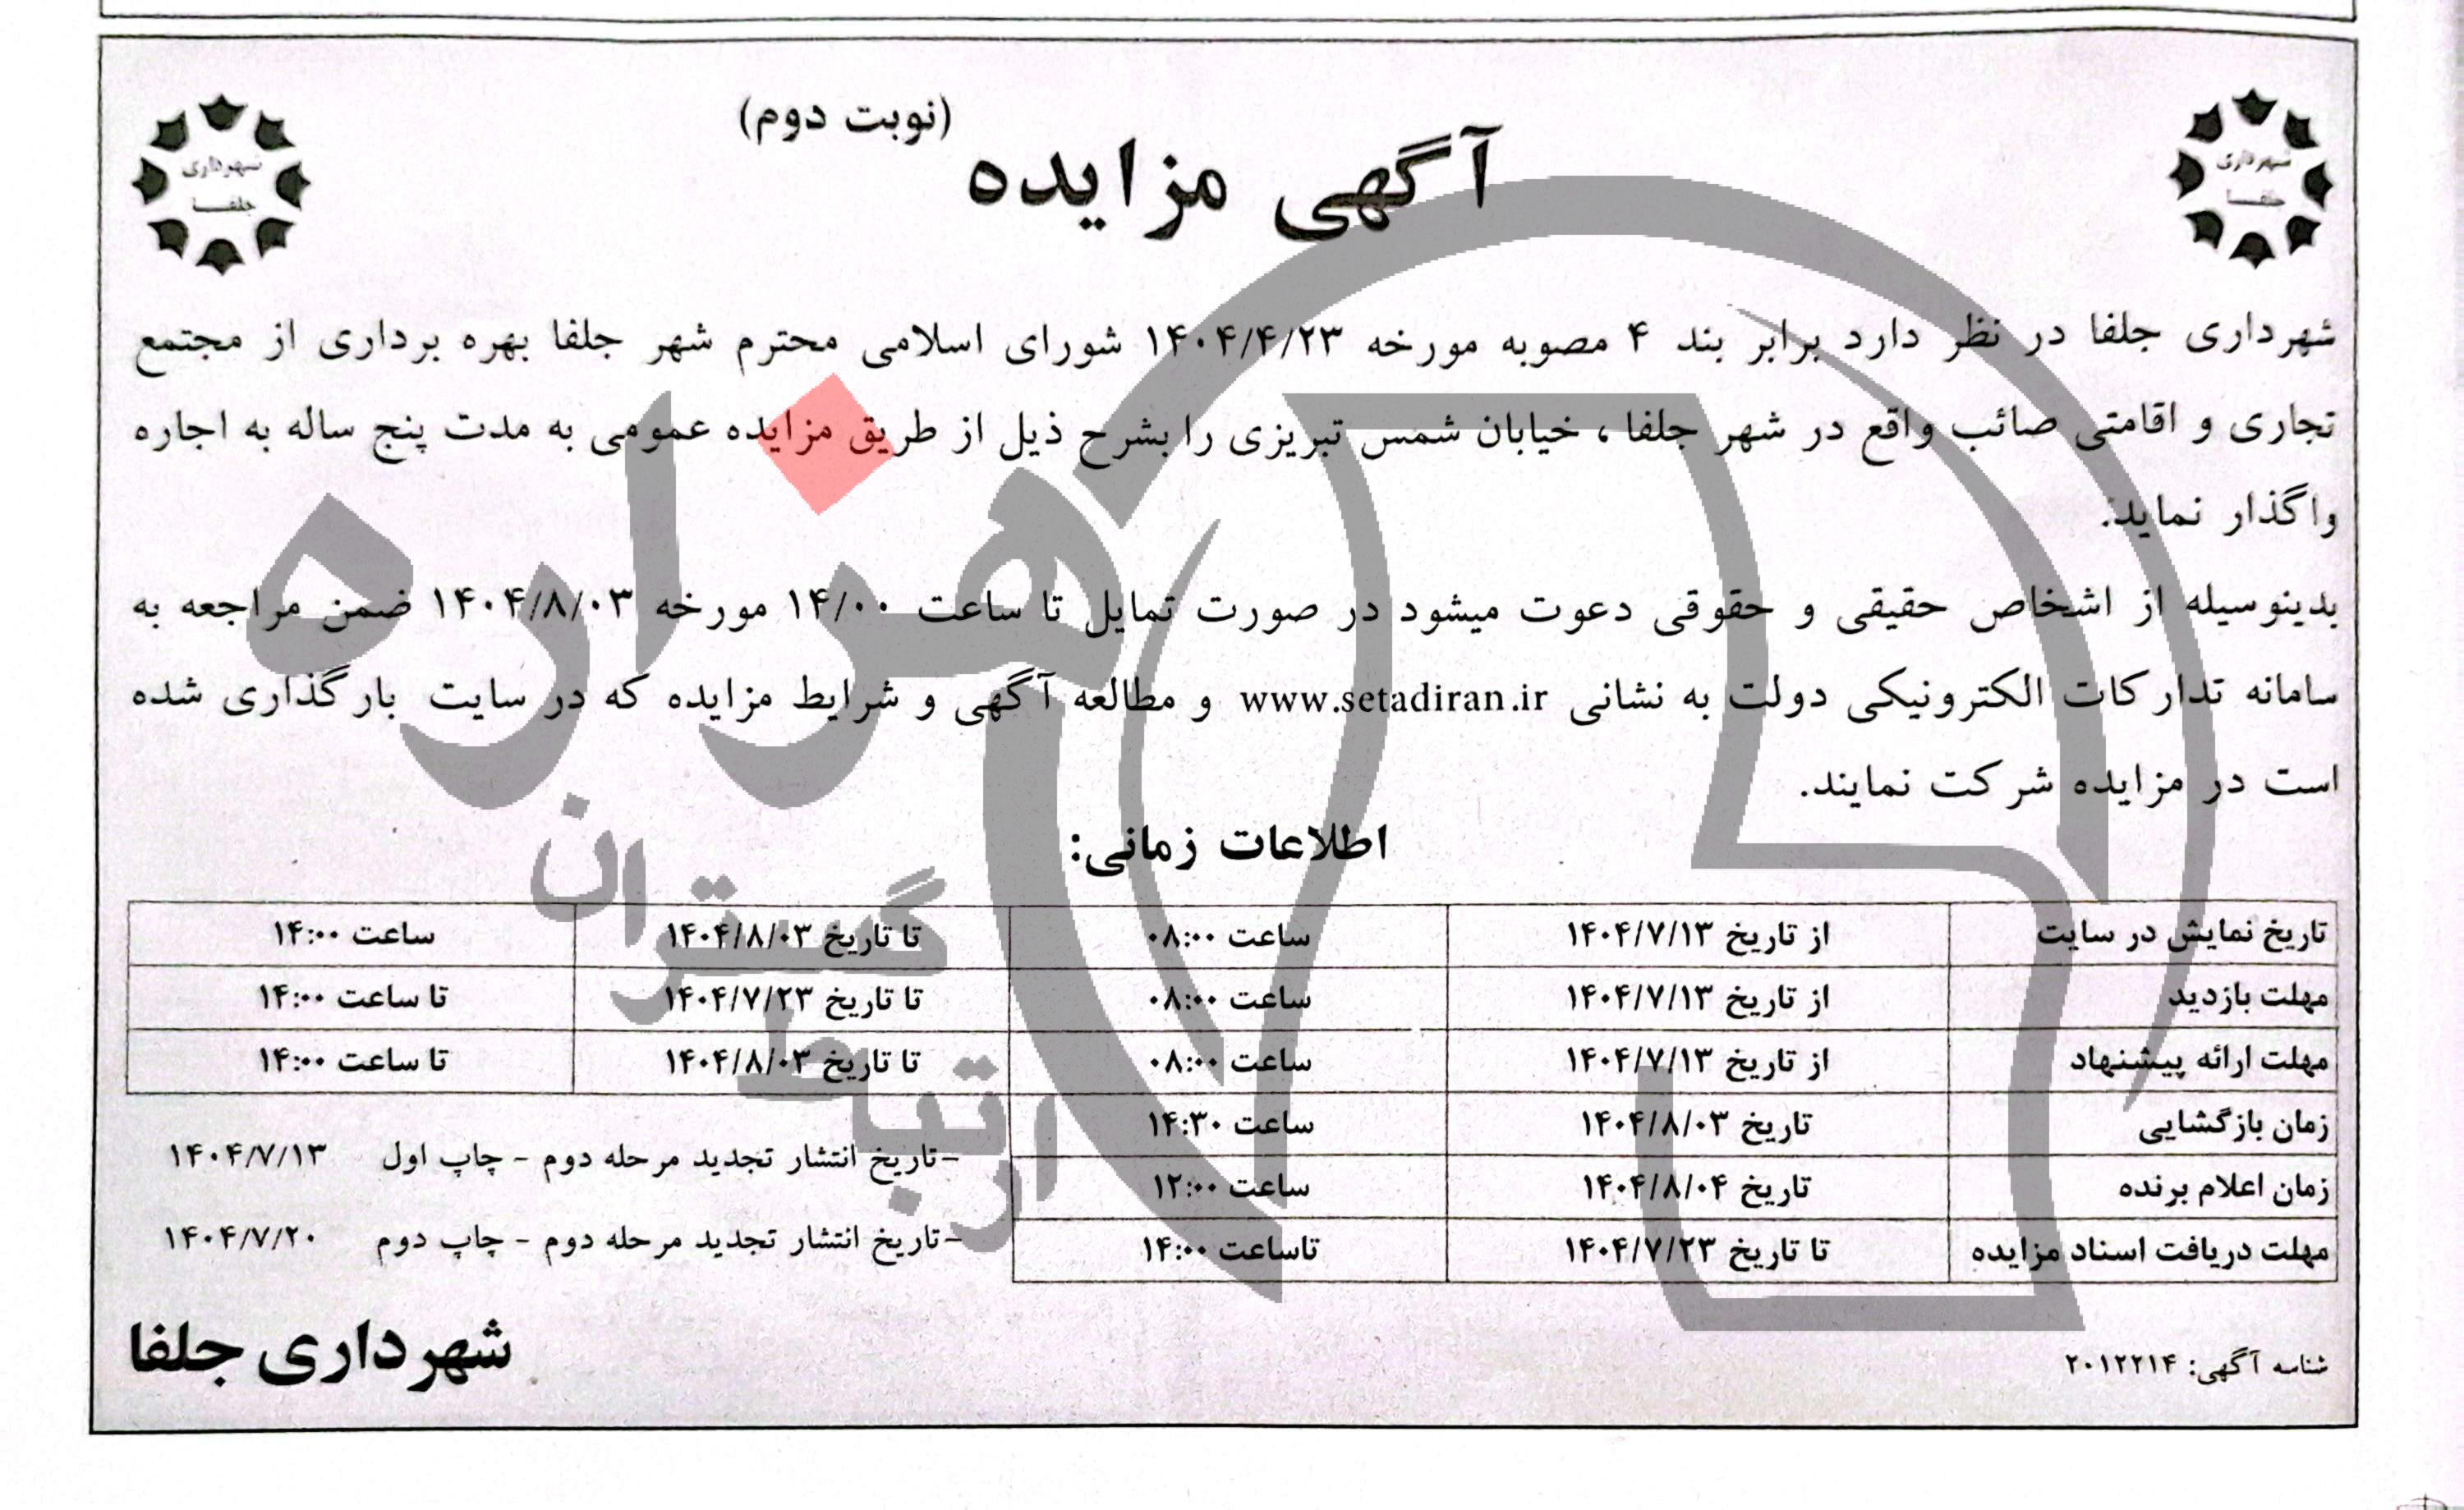 (نوبت دوم)
آگهی مزایده
شهرداری
جلفا
شهرداری
جلفا
شهرداری جلفا در نظر دارد برابر بند ۴ مصوبه مورخه ۱۴۰۴/۴/۲۳ شورای اسلامی محترم شهر جلفا بهره برداری از مجتمع
تجاری و اقامتی صائب واقع در شهر جلفا ، خیابان شمس تبریزی را بشرح ذیل از طریق مزایده عمومی به مدت پنج ساله به اجاره
واگذار نماید.
بدینوسیله از اشخاص حقیقی و حقوقی دعوت میشود در صورت تمایل تا ساعت ۱۴/۰۰ مورخه ۱۴۰۴/۸/۰۳ ضمن مراجعه به
سامانه تدارکات الکترونیکی دولت به نشانی www.setadiran.ir و مطالعه آگهی و شرایط مزایده که در سایت بارگذاری شده
است در مزایده شرکت نمایند.
اطلاعات زمانی:
تاریخ نمایش در سایت از تاریخ ۱۴۰۴/۷/۱۳ ساعت ۰۸:۰۰ تا تاریخ ۱۴۰۴/۸/۰۳ ساعت ۱۴:۰۰
مهلت بازدید از تاریخ ۱۴۰۴/۷/۱۳ ساعت ۰۸:۰۰ تا تاریخ ۱۴۰۴/۷/۲۳ تا ساعت ۱۴:۰۰
مهلت ارائه پیشنهاد از تاریخ ۱۴۰۴/۷/۱۳ ساعت ۰۸:۰۰ تا تاریخ ۱۴۰۴/۸/۰۳ تا ساعت ۱۴:۰۰
زمان بازگشایی تاریخ ۱۴۰۴/۸/۰۳ ساعت ۱۴:۳۰
زمان اعلام برنده تاریخ ۱۴۰۴/۸/۰۴ ساعت ۱۲:۰۰
مهلت دریافت اسناد مزایده تا تاریخ ۱۴۰۴/۷/۲۳ تاساعت ۱۴:۰۰
-تاریخ انتشار تجدید مرحله دوم - چاپ اول ۱۴۰۴/۷/۱۳
-تاریخ انتشار تجدید مرحله دوم - چاپ دوم ۱۴۰۴/۷/۲۰
شهرداری جلفا
شناسه آگهی: ۲۰۱۲۲۱۴
هزاره
ارتباط گستران